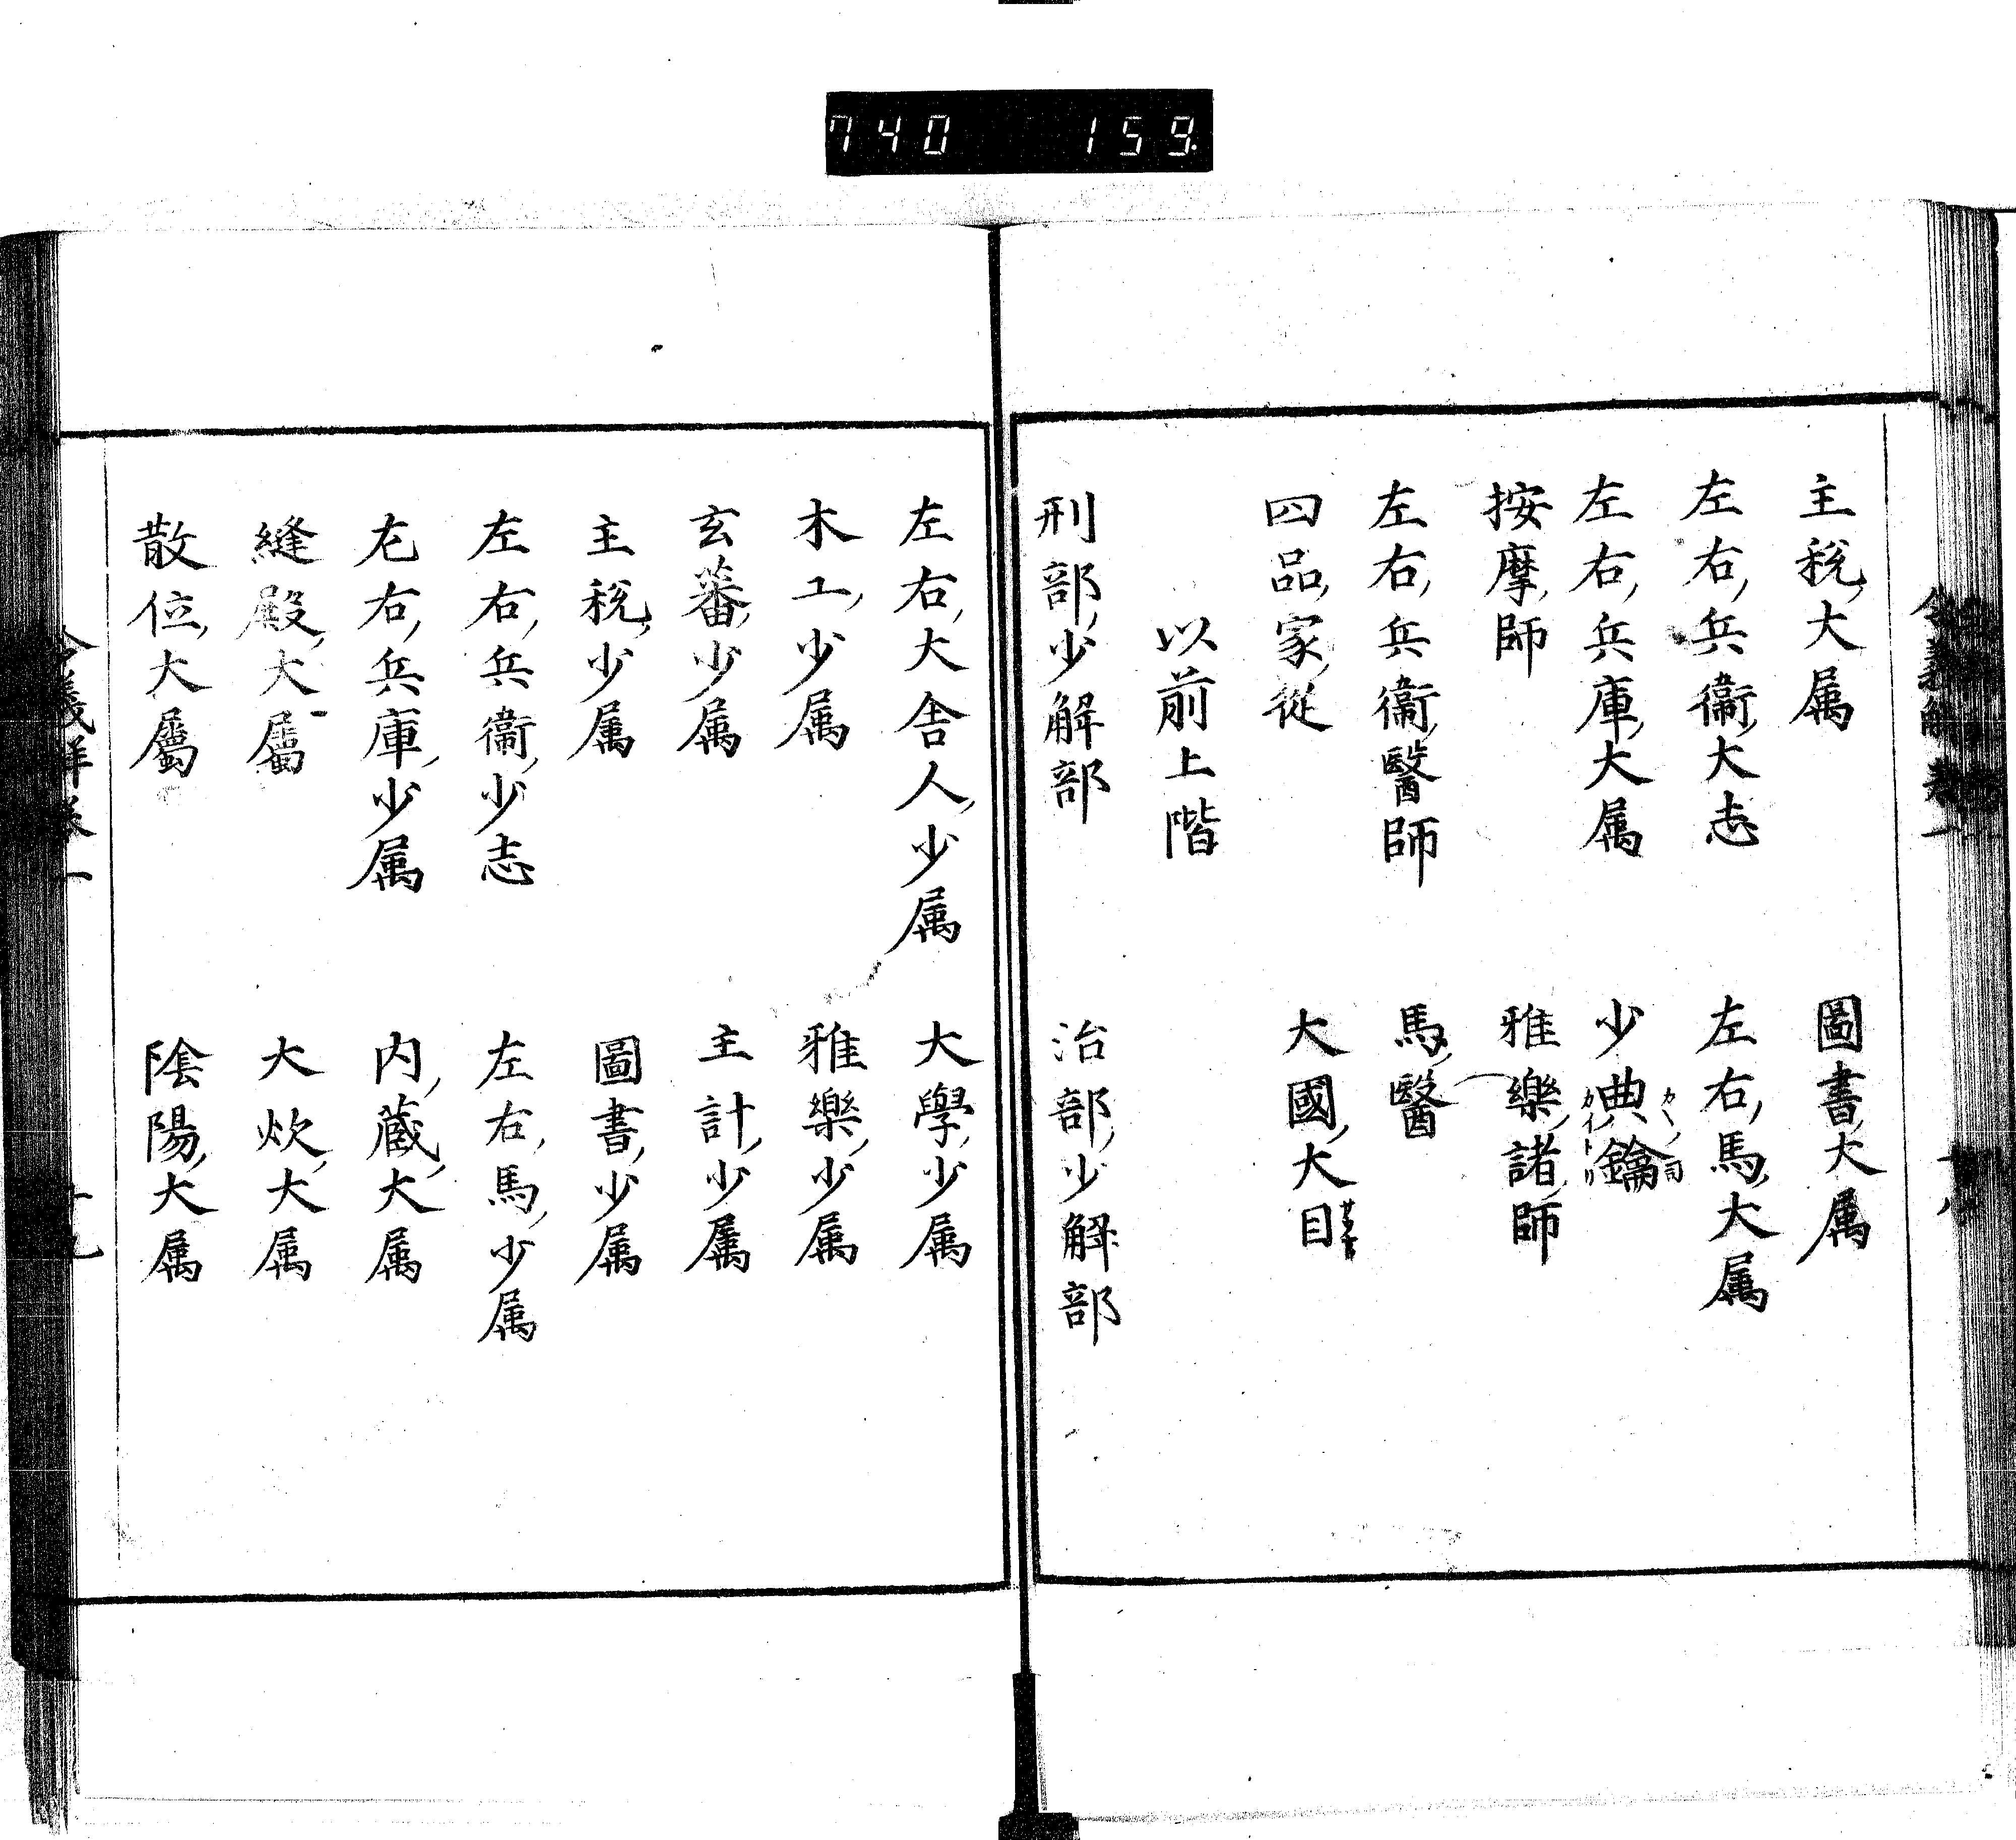 740 159.
主税大属 圖書大属
左右兵衞大志 左右馬大属
左右兵庫大属 少典鑰
按摩師 雅樂諸師
左右兵衞醫師 馬醫
四品家從 大國大目
以前上階
刑部少解部 治部少解部
左右大舎人少属 大學少属
木工少属 雅樂少属
玄蕃少属 主計少属
主税少属 圖書少属
左右兵衞少志 左右馬少属
左右兵庫少属 内藏大属
縫殿大屬 大炊大属
散位大屬 陰陽大属